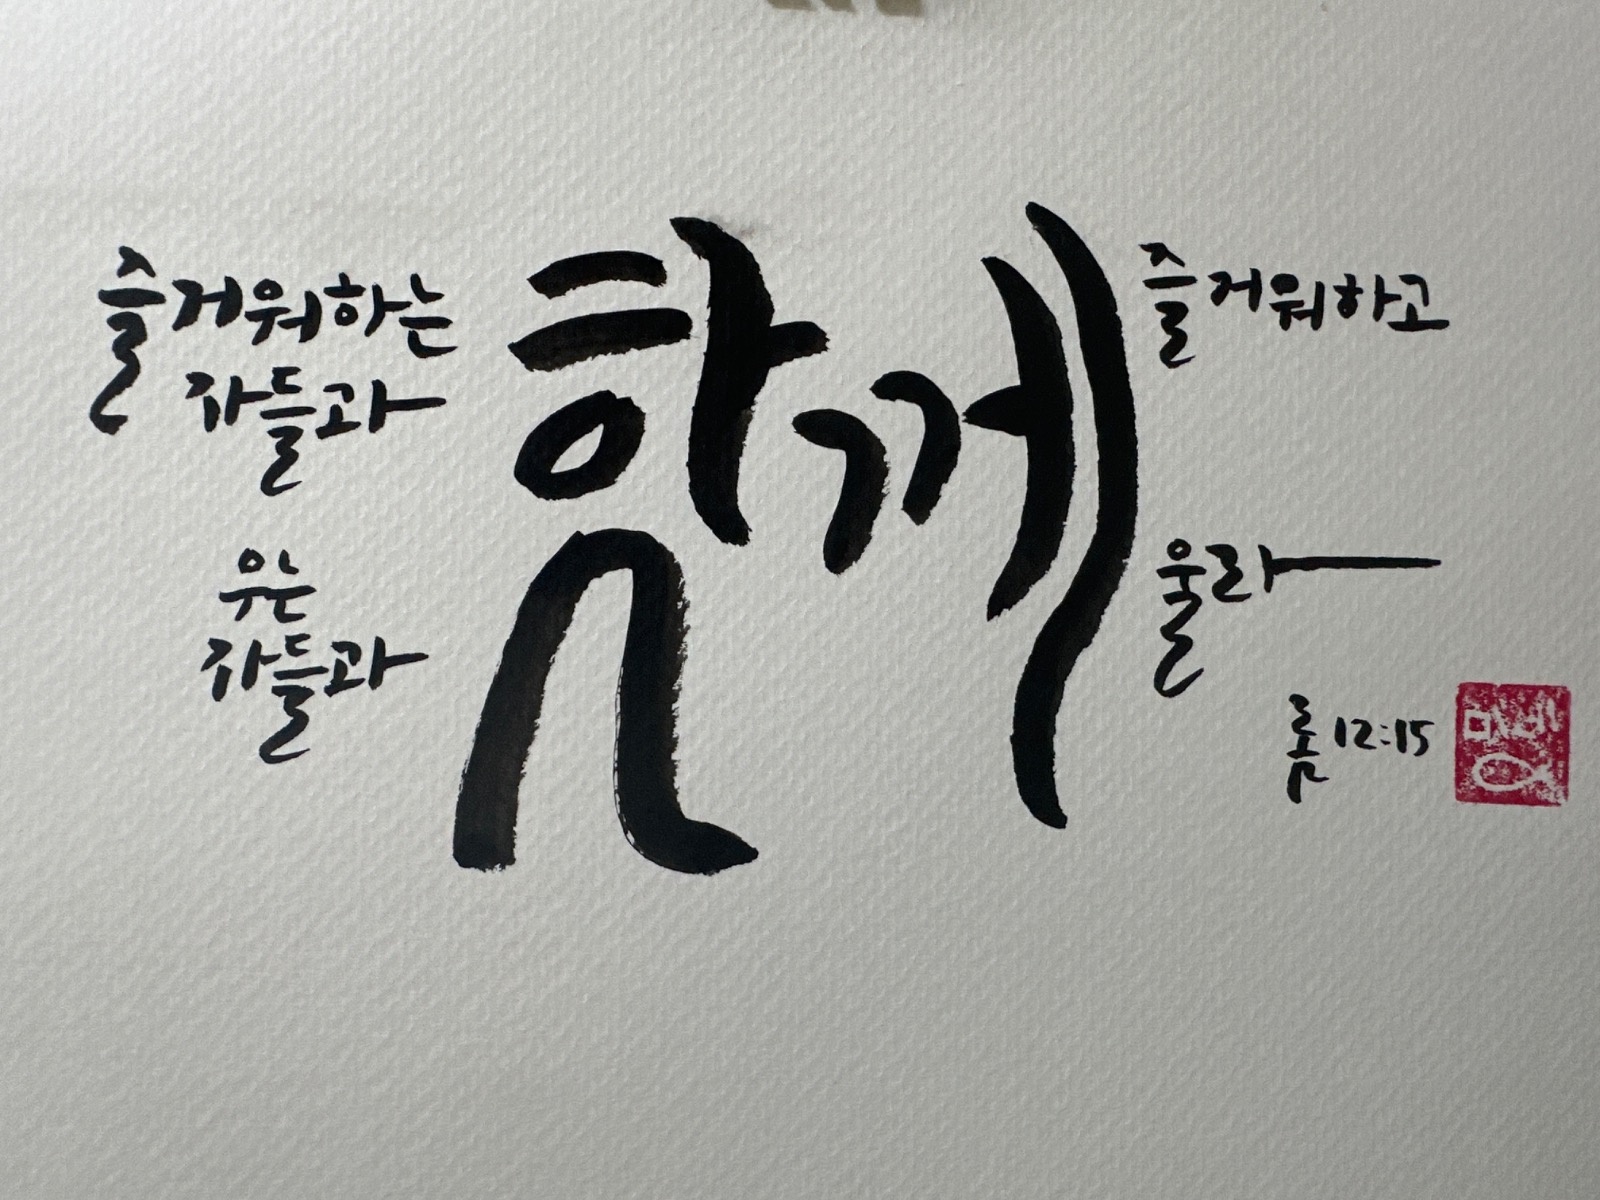 즐거워하는
자들과
함께
즐거워하고
우는
자들과
울라
롬 12:15